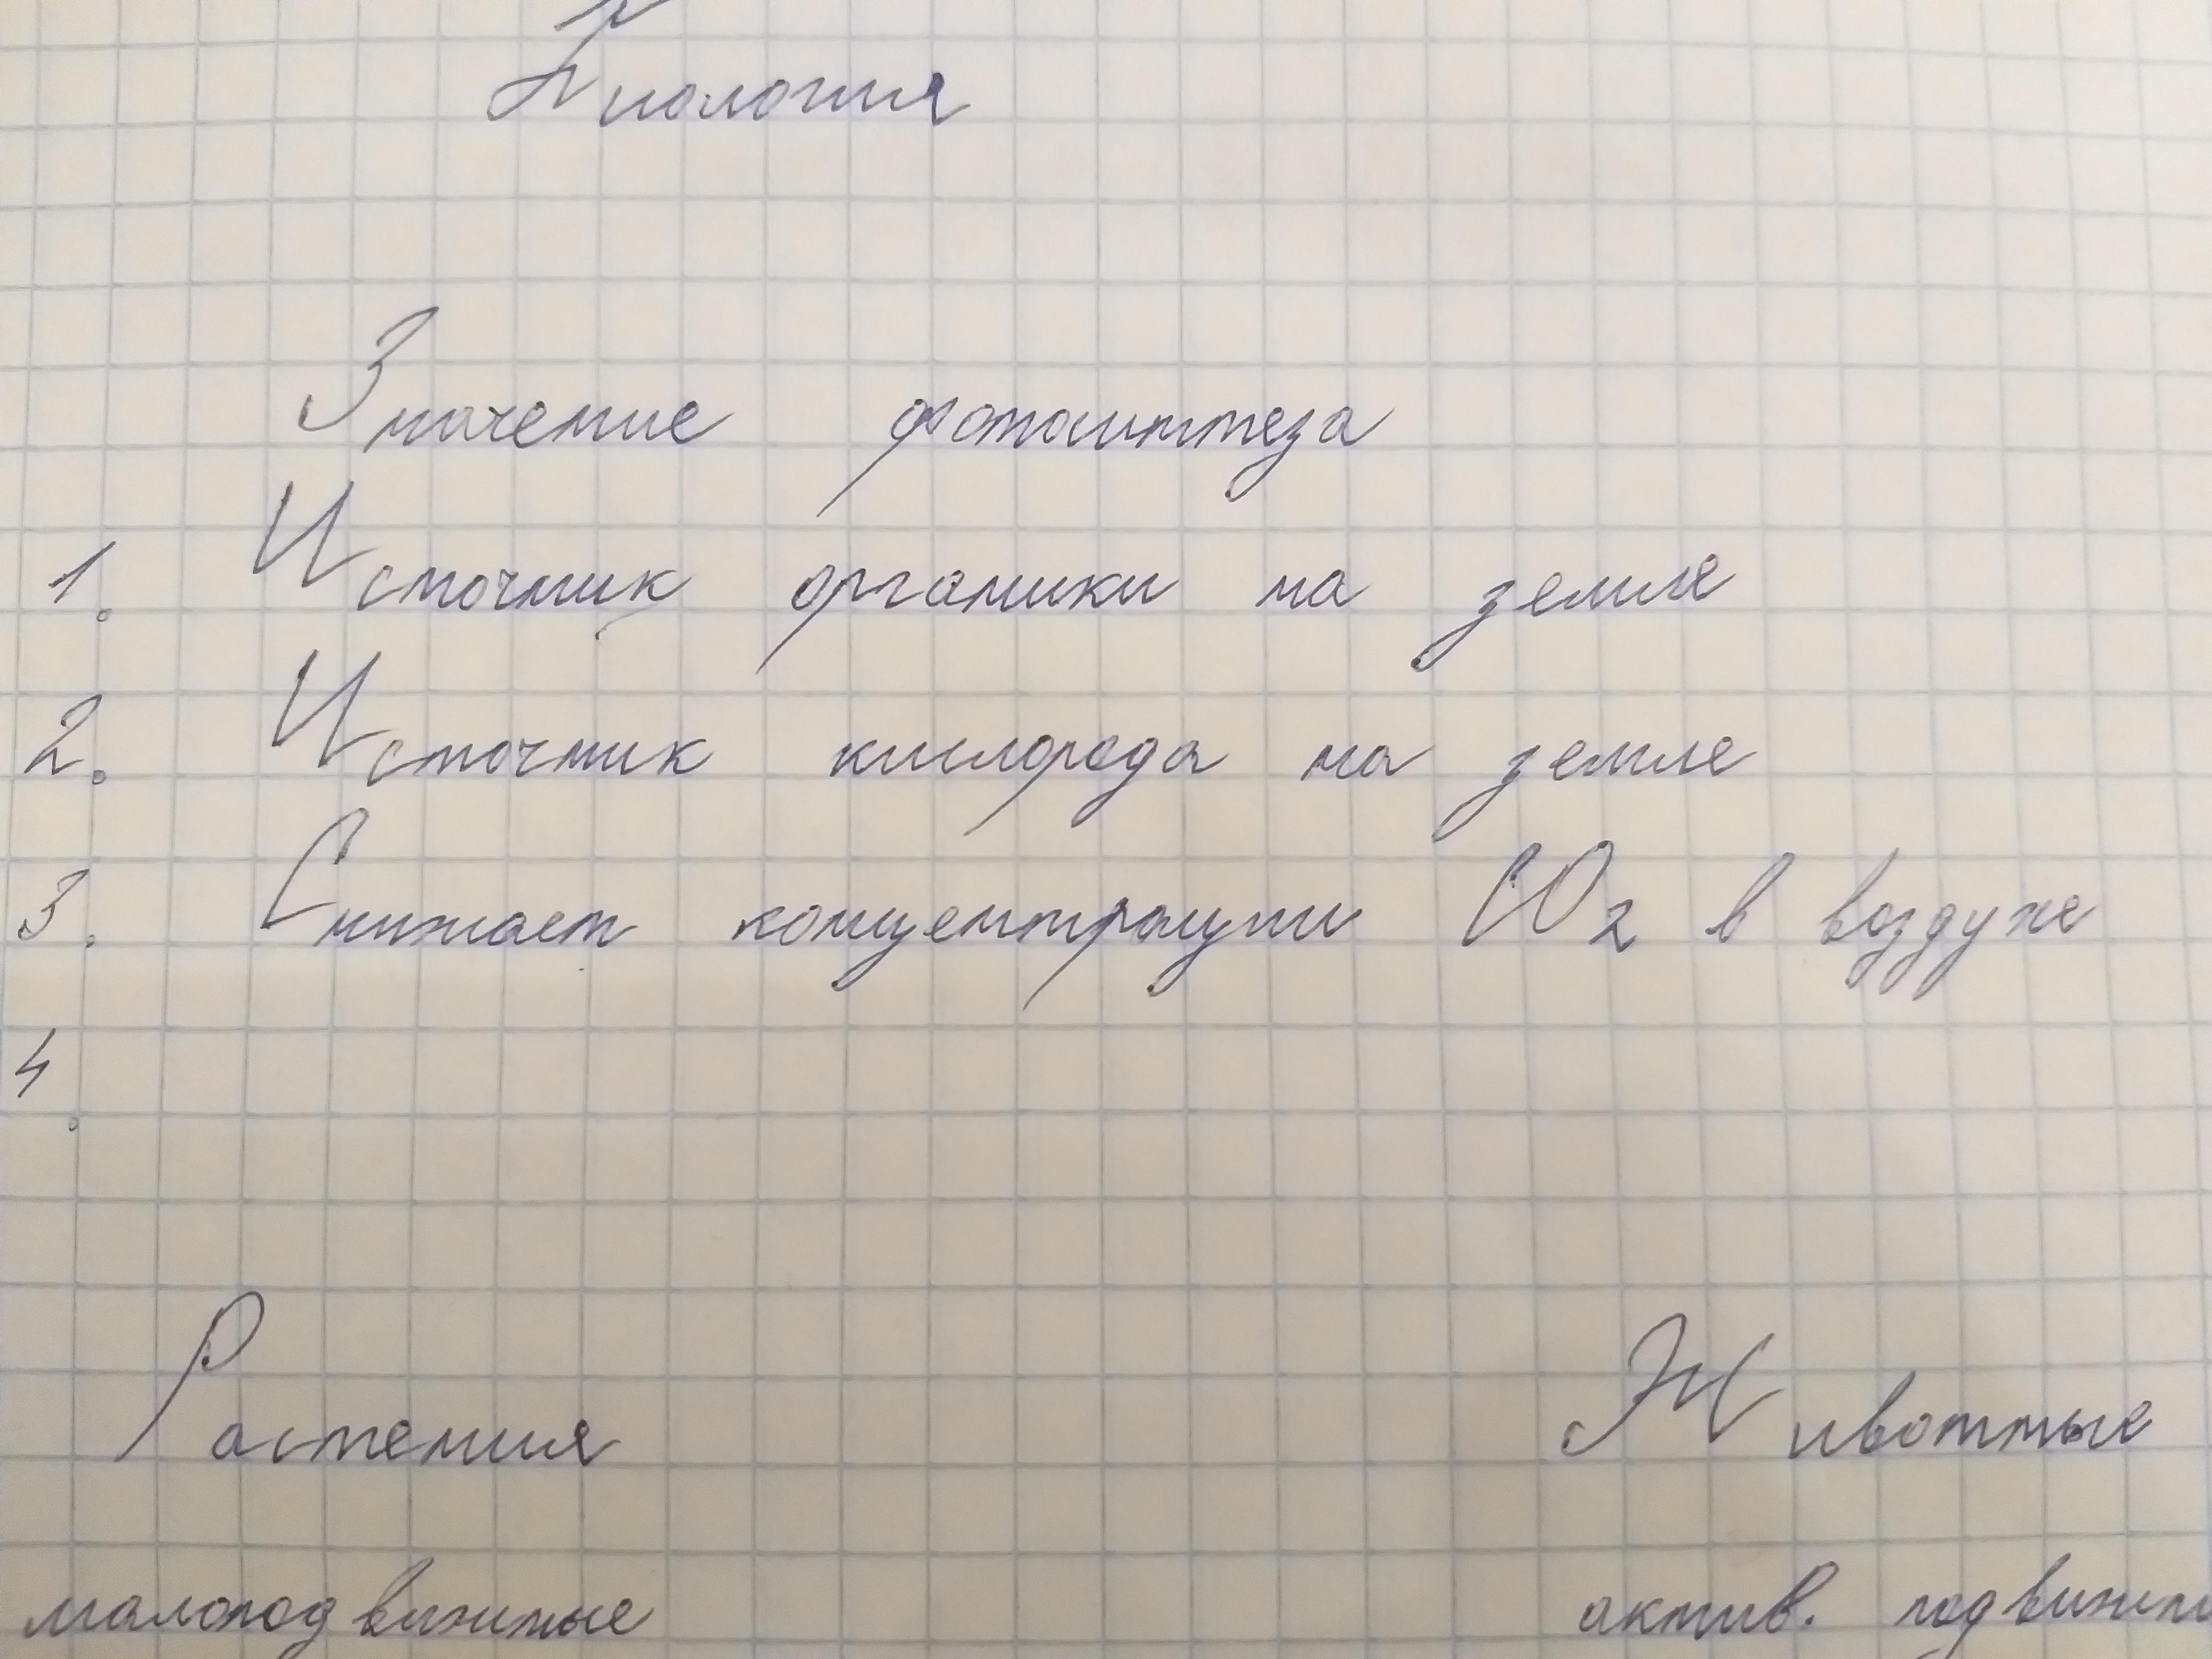 Биология
Значение фотосинтеза
1. Источник органики на земле
2. Источник кислорода на земле
3. Снижает концентрации CO2 в воздухе
4.
Растения Животные
малоподвижные актив. подвижн